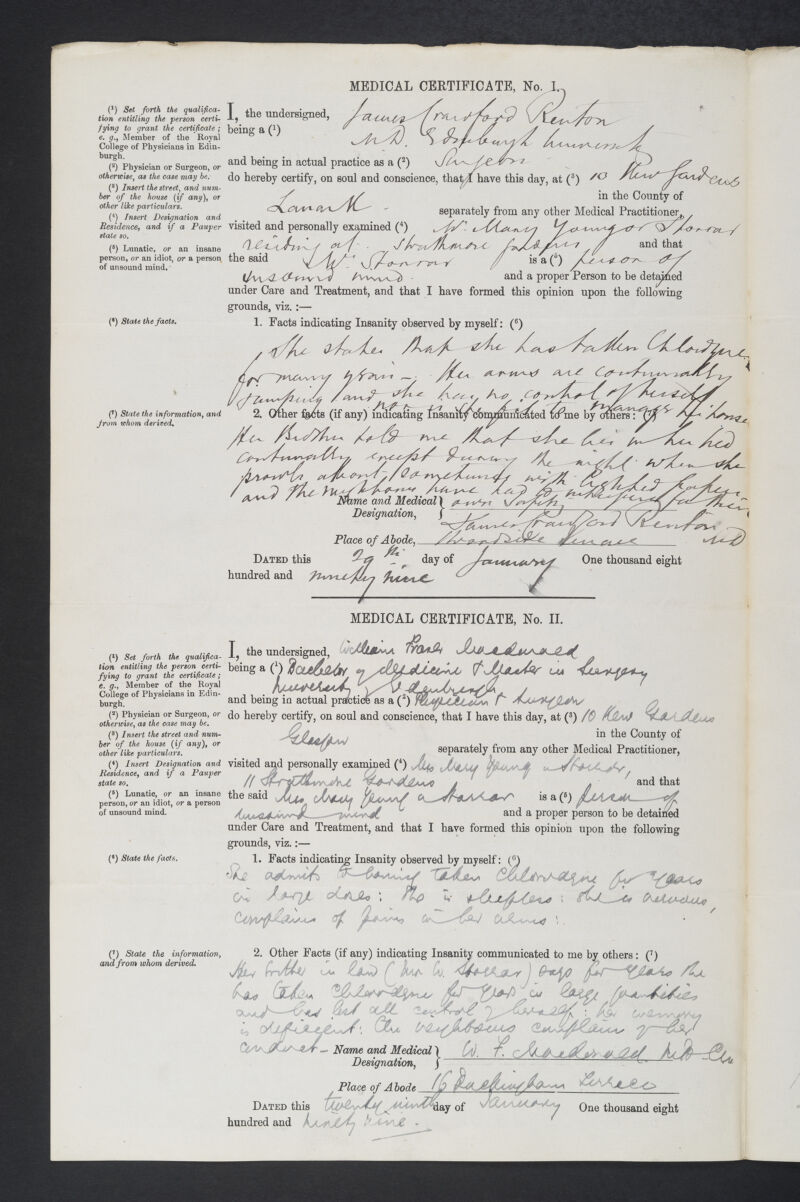 MEDICAL CERTIFICATE, No. I.
(¹) Set forth the qualifica-
tion entitling the person certi-
fying to grant the certificate;
e. g., Member of the Royal
College of Physicians in Edin-
burgh.
(²) Physician or Surgeon, or
otherwise, as the case may be.
(³) Insert the street, and num-
ber of the house (if any), or
other like particulars.
(⁴) Insert Designation and
Residence, and if a Pauper
state so.
(⁵) Lunatic, or an insane
person, or an idiot, or a person
of unsound mind.
I, the undersigned, James Crawford Renton
being a (¹) M.D. Edinburgh University
and being in actual practice as a (²) Surgeon
do hereby certify, on soul and conscience, that I have this day, at (³) 10 Kew Gardens
Lanark in the County of
separately from any other Medical Practitioner,
visited and personally examined (⁴) Mrs Mary Young or Storrar
residing at Strathmore Gardens and that
the said Mrs Storrar is a (⁵) person of
unsound mind and a proper Person to be detained
under Care and Treatment, and that I have formed this opinion upon the following
grounds, viz. :—
(⁶) State the facts.
1. Facts indicating Insanity observed by myself: (⁶)
She states that she has taken Chlorodyne
for many years – Her arms are continually
jumping and she has no control of herself
not manage her house
(⁷) State the information, and
from whom derived.
2. Other facts (if any) indicating Insanity communicated to me by others: (⁷)
Her Brother told me that she lies in her bed
continually except during the night when she
prowls about sometimes with lighted paper
and the neighbours have had to for their
own safety
Name and Medical Designation, James Crawford Renton MD
Place of Abode, Woodside Terrace
DATED this 29th day of January One thousand eight
hundred and ninety nine
MEDICAL CERTIFICATE, No. II.
(¹) Set forth the qualifica-
tion entitling the person certi-
fying to grant the certificate;
e. g., Member of the Royal
College of Physicians in Edin-
burgh.
(²) Physician or Surgeon, or
otherwise, as the case may be.
(³) Insert the street and num-
ber of the house (if any), or
other like particulars.
(⁴) Insert Designation and
Residence, and if a Pauper
state so.
(⁵) Lunatic, or an insane
person, or an idiot, or a person
of unsound mind.
I, the undersigned, William Fraser Macdonald
being a (¹) Bachelor of Medicine & Master in Surgery
University of Edinburgh
and being in actual practice as a (²) Physician & Surgeon
do hereby certify, on soul and conscience, that I have this day, at (³) 10 Kew Gardens
Glasgow in the County of
separately from any other Medical Practitioner,
visited and personally examined (⁴) Mrs Mary Young or Storrar,
11 Strathmore Gardens and that
the said Mrs Mary Young or Storrar is a (⁵) person of
unsound mind and a proper person to be detained
under Care and Treatment, and that I have formed this opinion upon the following
grounds, viz. :—
(⁶) State the facts.
1. Facts indicating Insanity observed by myself: (⁶)
She admits to having taken Chlorodyne for years
in large doses: She is sleepless: She is nervous,
complains of pains in her arms:
(⁷) State the information,
and from whom derived.
2. Other Facts (if any) indicating Insanity communicated to me by others: (⁷)
Her brother in law (Mr W. Storrar) says for years she
has taken Chlorodyne for years in large quantities
and has lost all control of herself: her memory
is deficient: The neighbours complain of her
conduct –
Name and Medical Designation, W. F. Macdonald MB CM
Place of Abode 16 Buckingham Terrace
DATED this twenty ninth day of January One thousand eight
hundred and ninety nine.